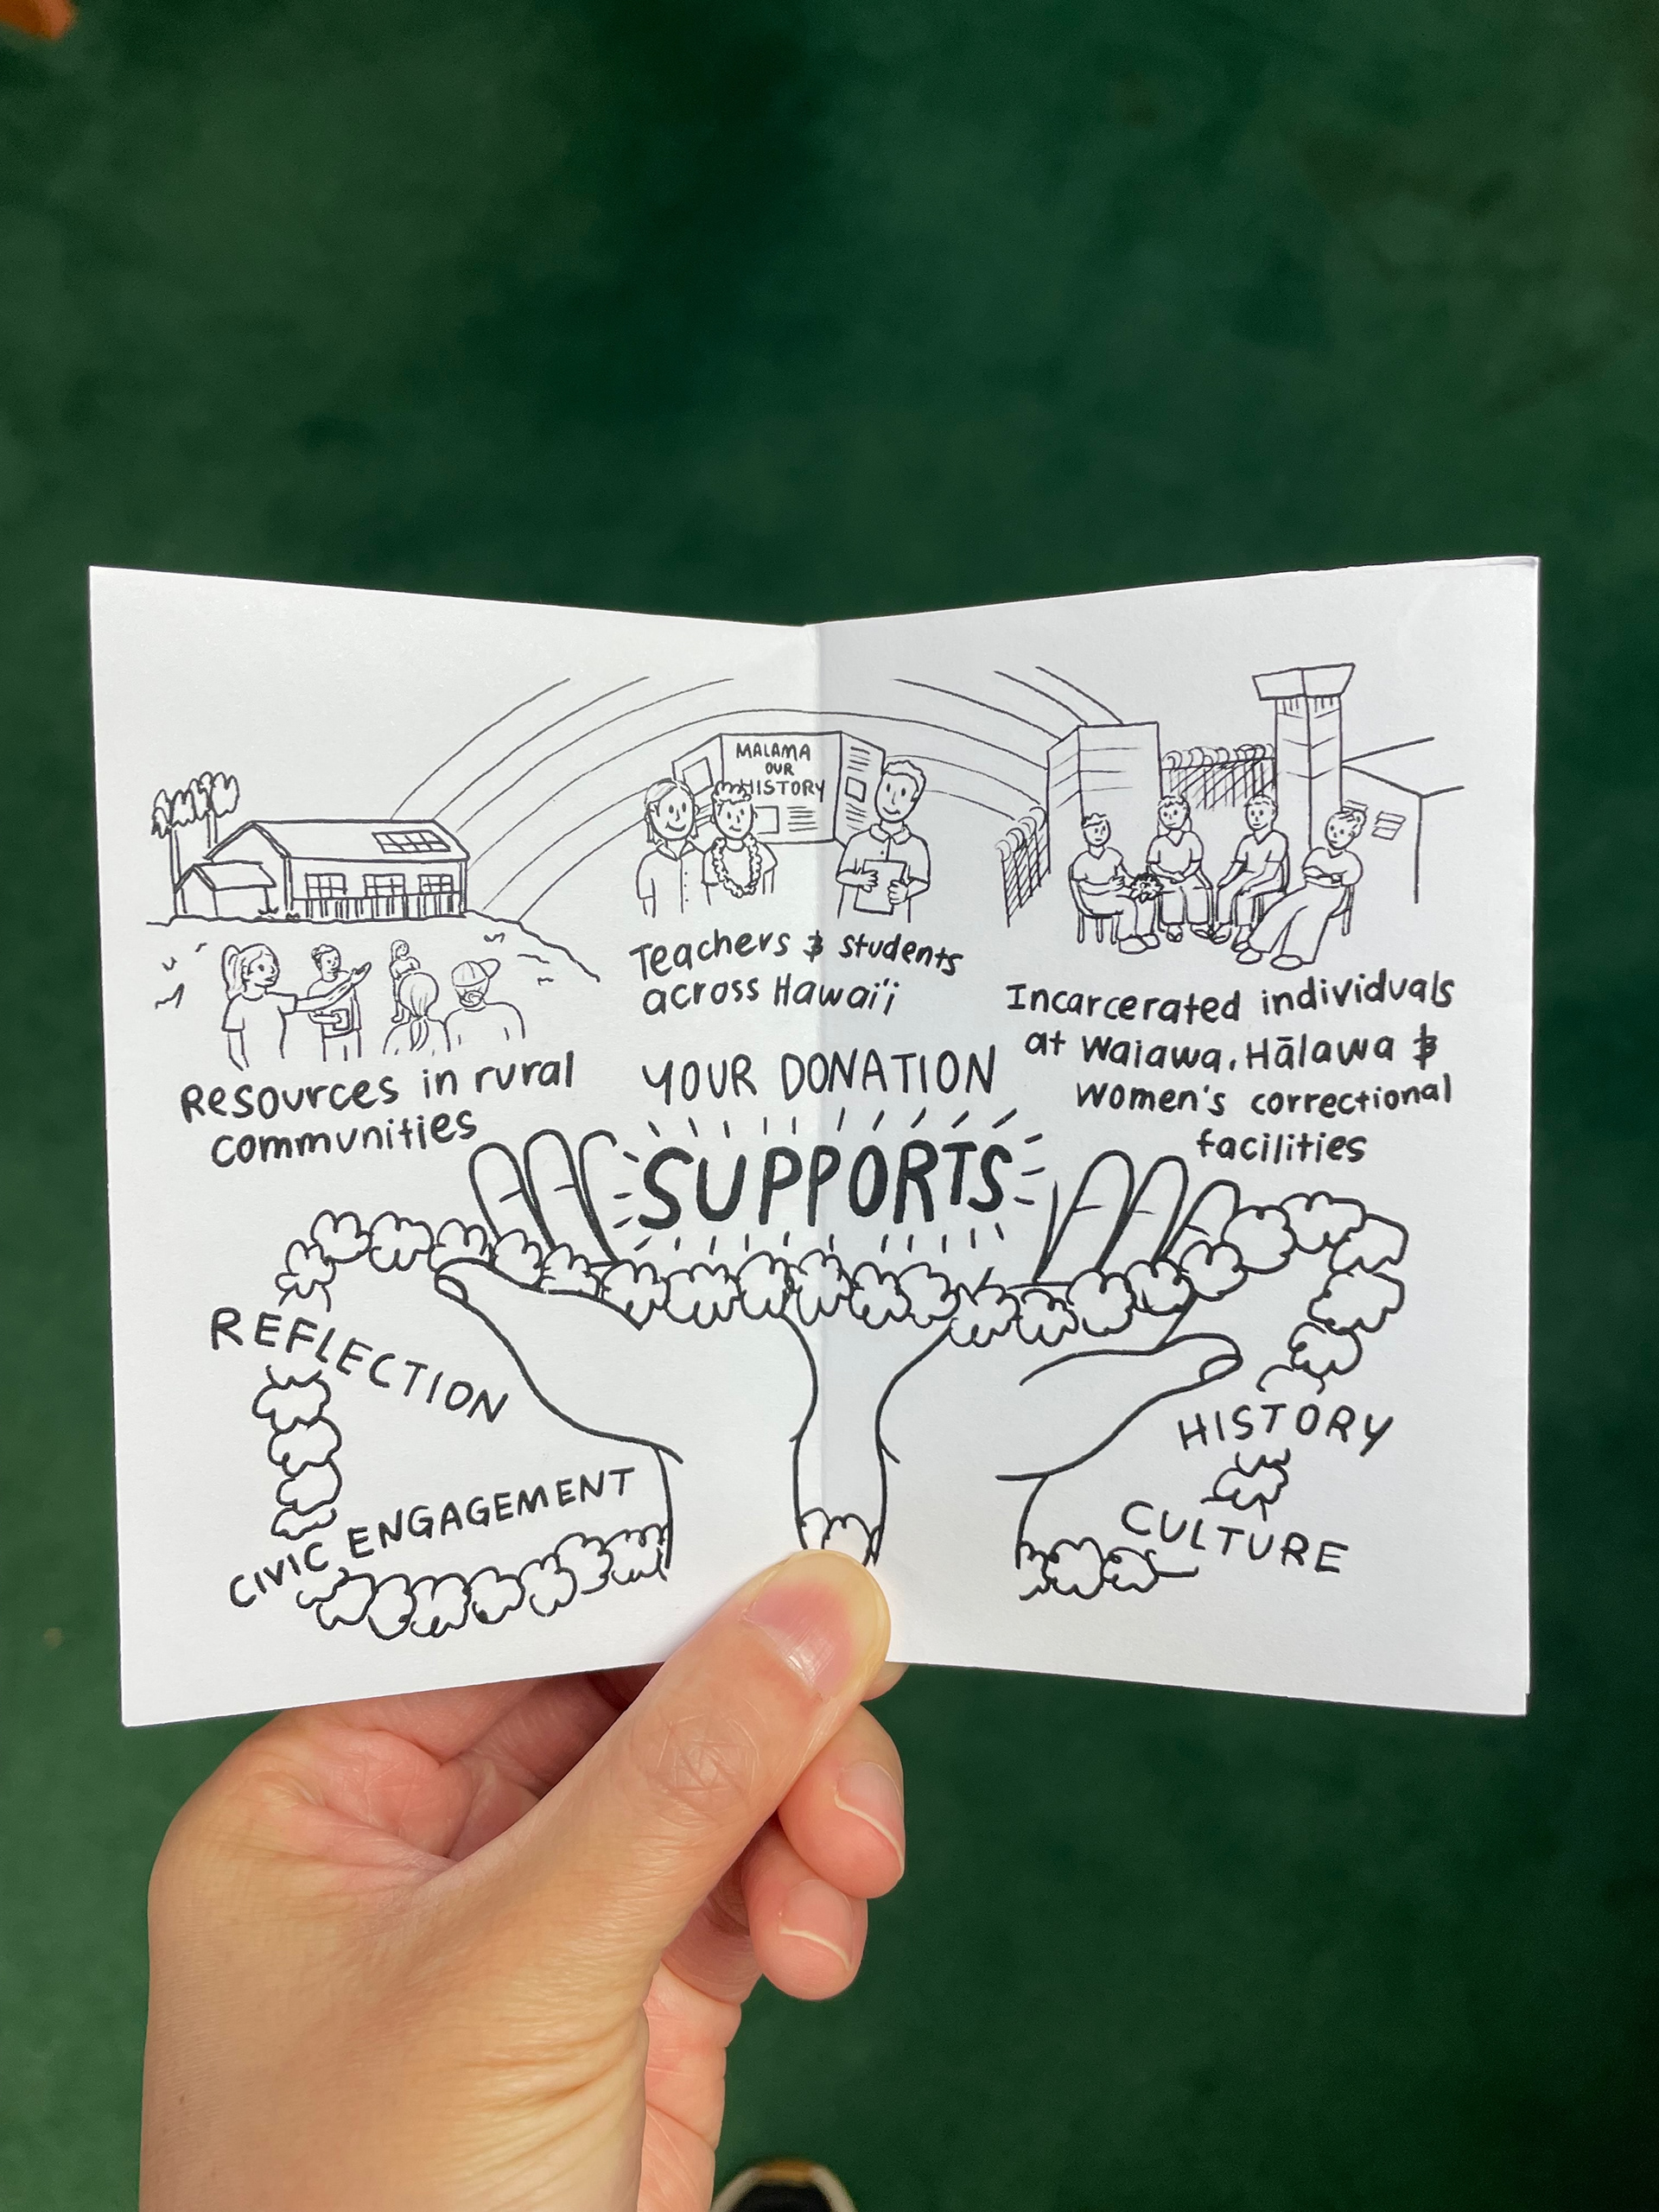 MALAMA
OUR
HISTORY
Teachers & students
across Hawai'i
Resources in rural
communities
Incarcerated individuals
at Waiawa, Hālawa &
women's correctional
facilities
YOUR DONATION
SUPPORTS
REFLECTION
CIVIC ENGAGEMENT
HISTORY
CULTURE